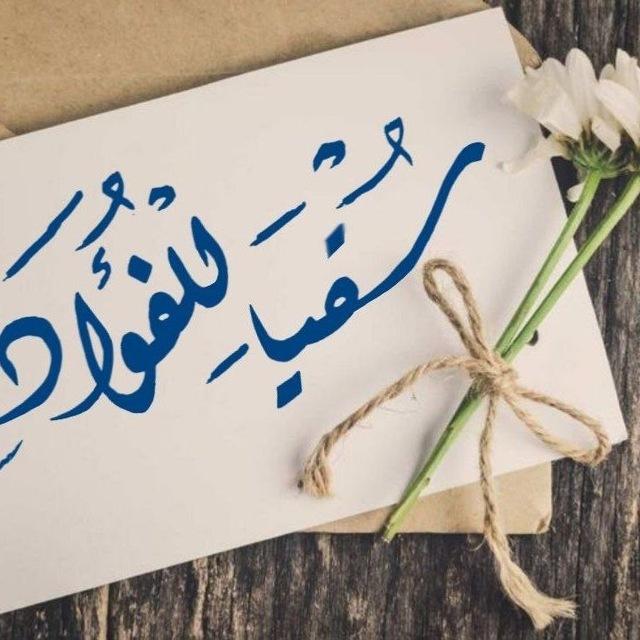 سُقْيَا لِلْفُؤَادِ